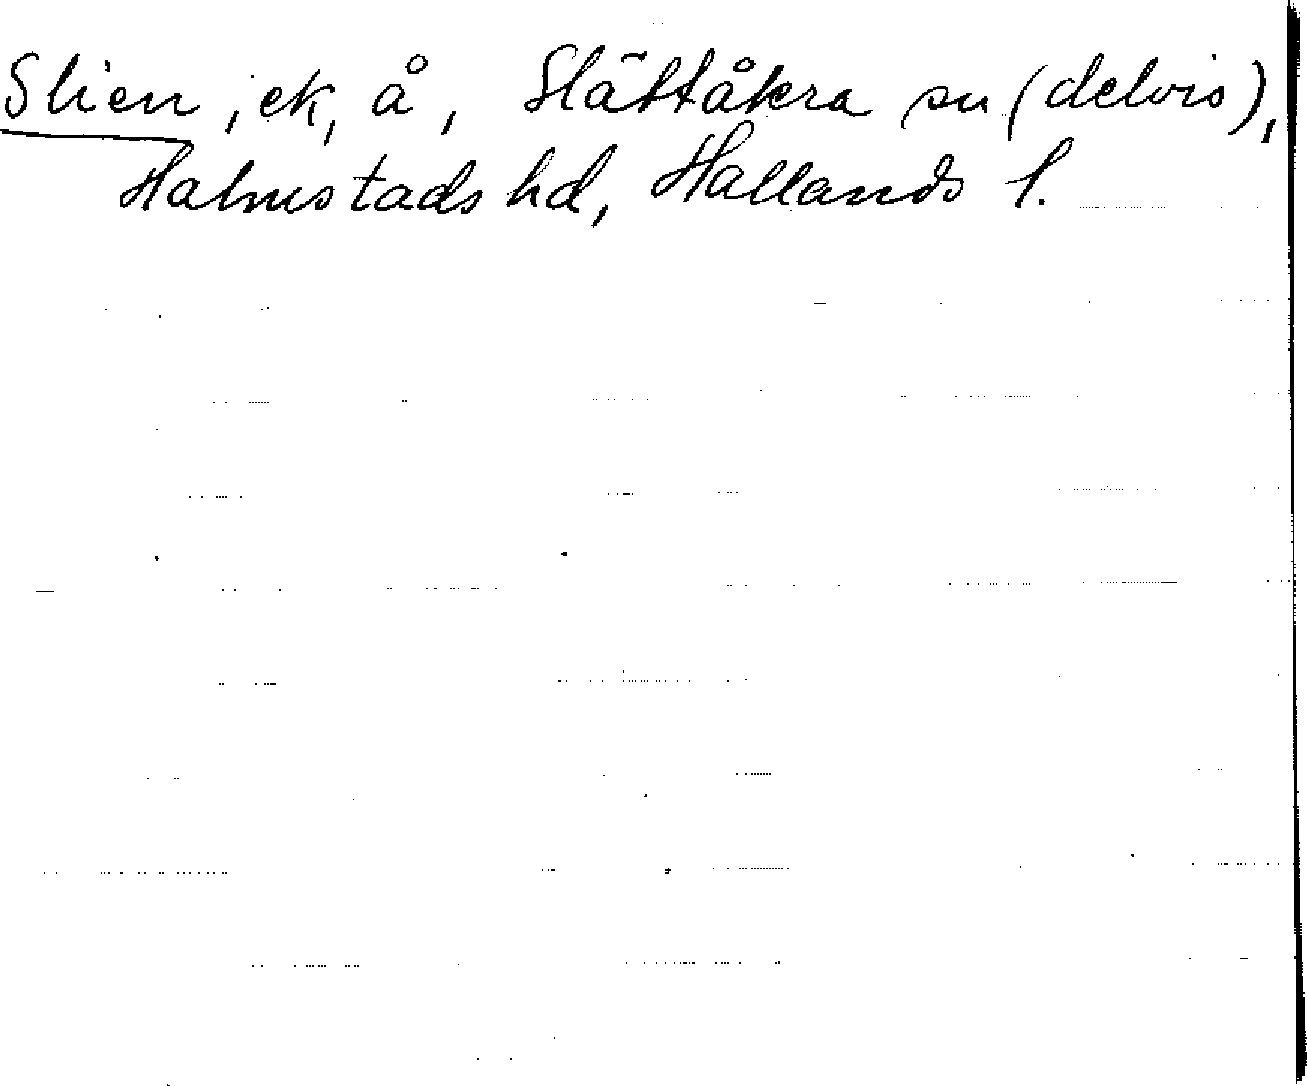 Slien, ek, å, Slättåkra sn (delvis),
Halmstads hd, Hallands l.